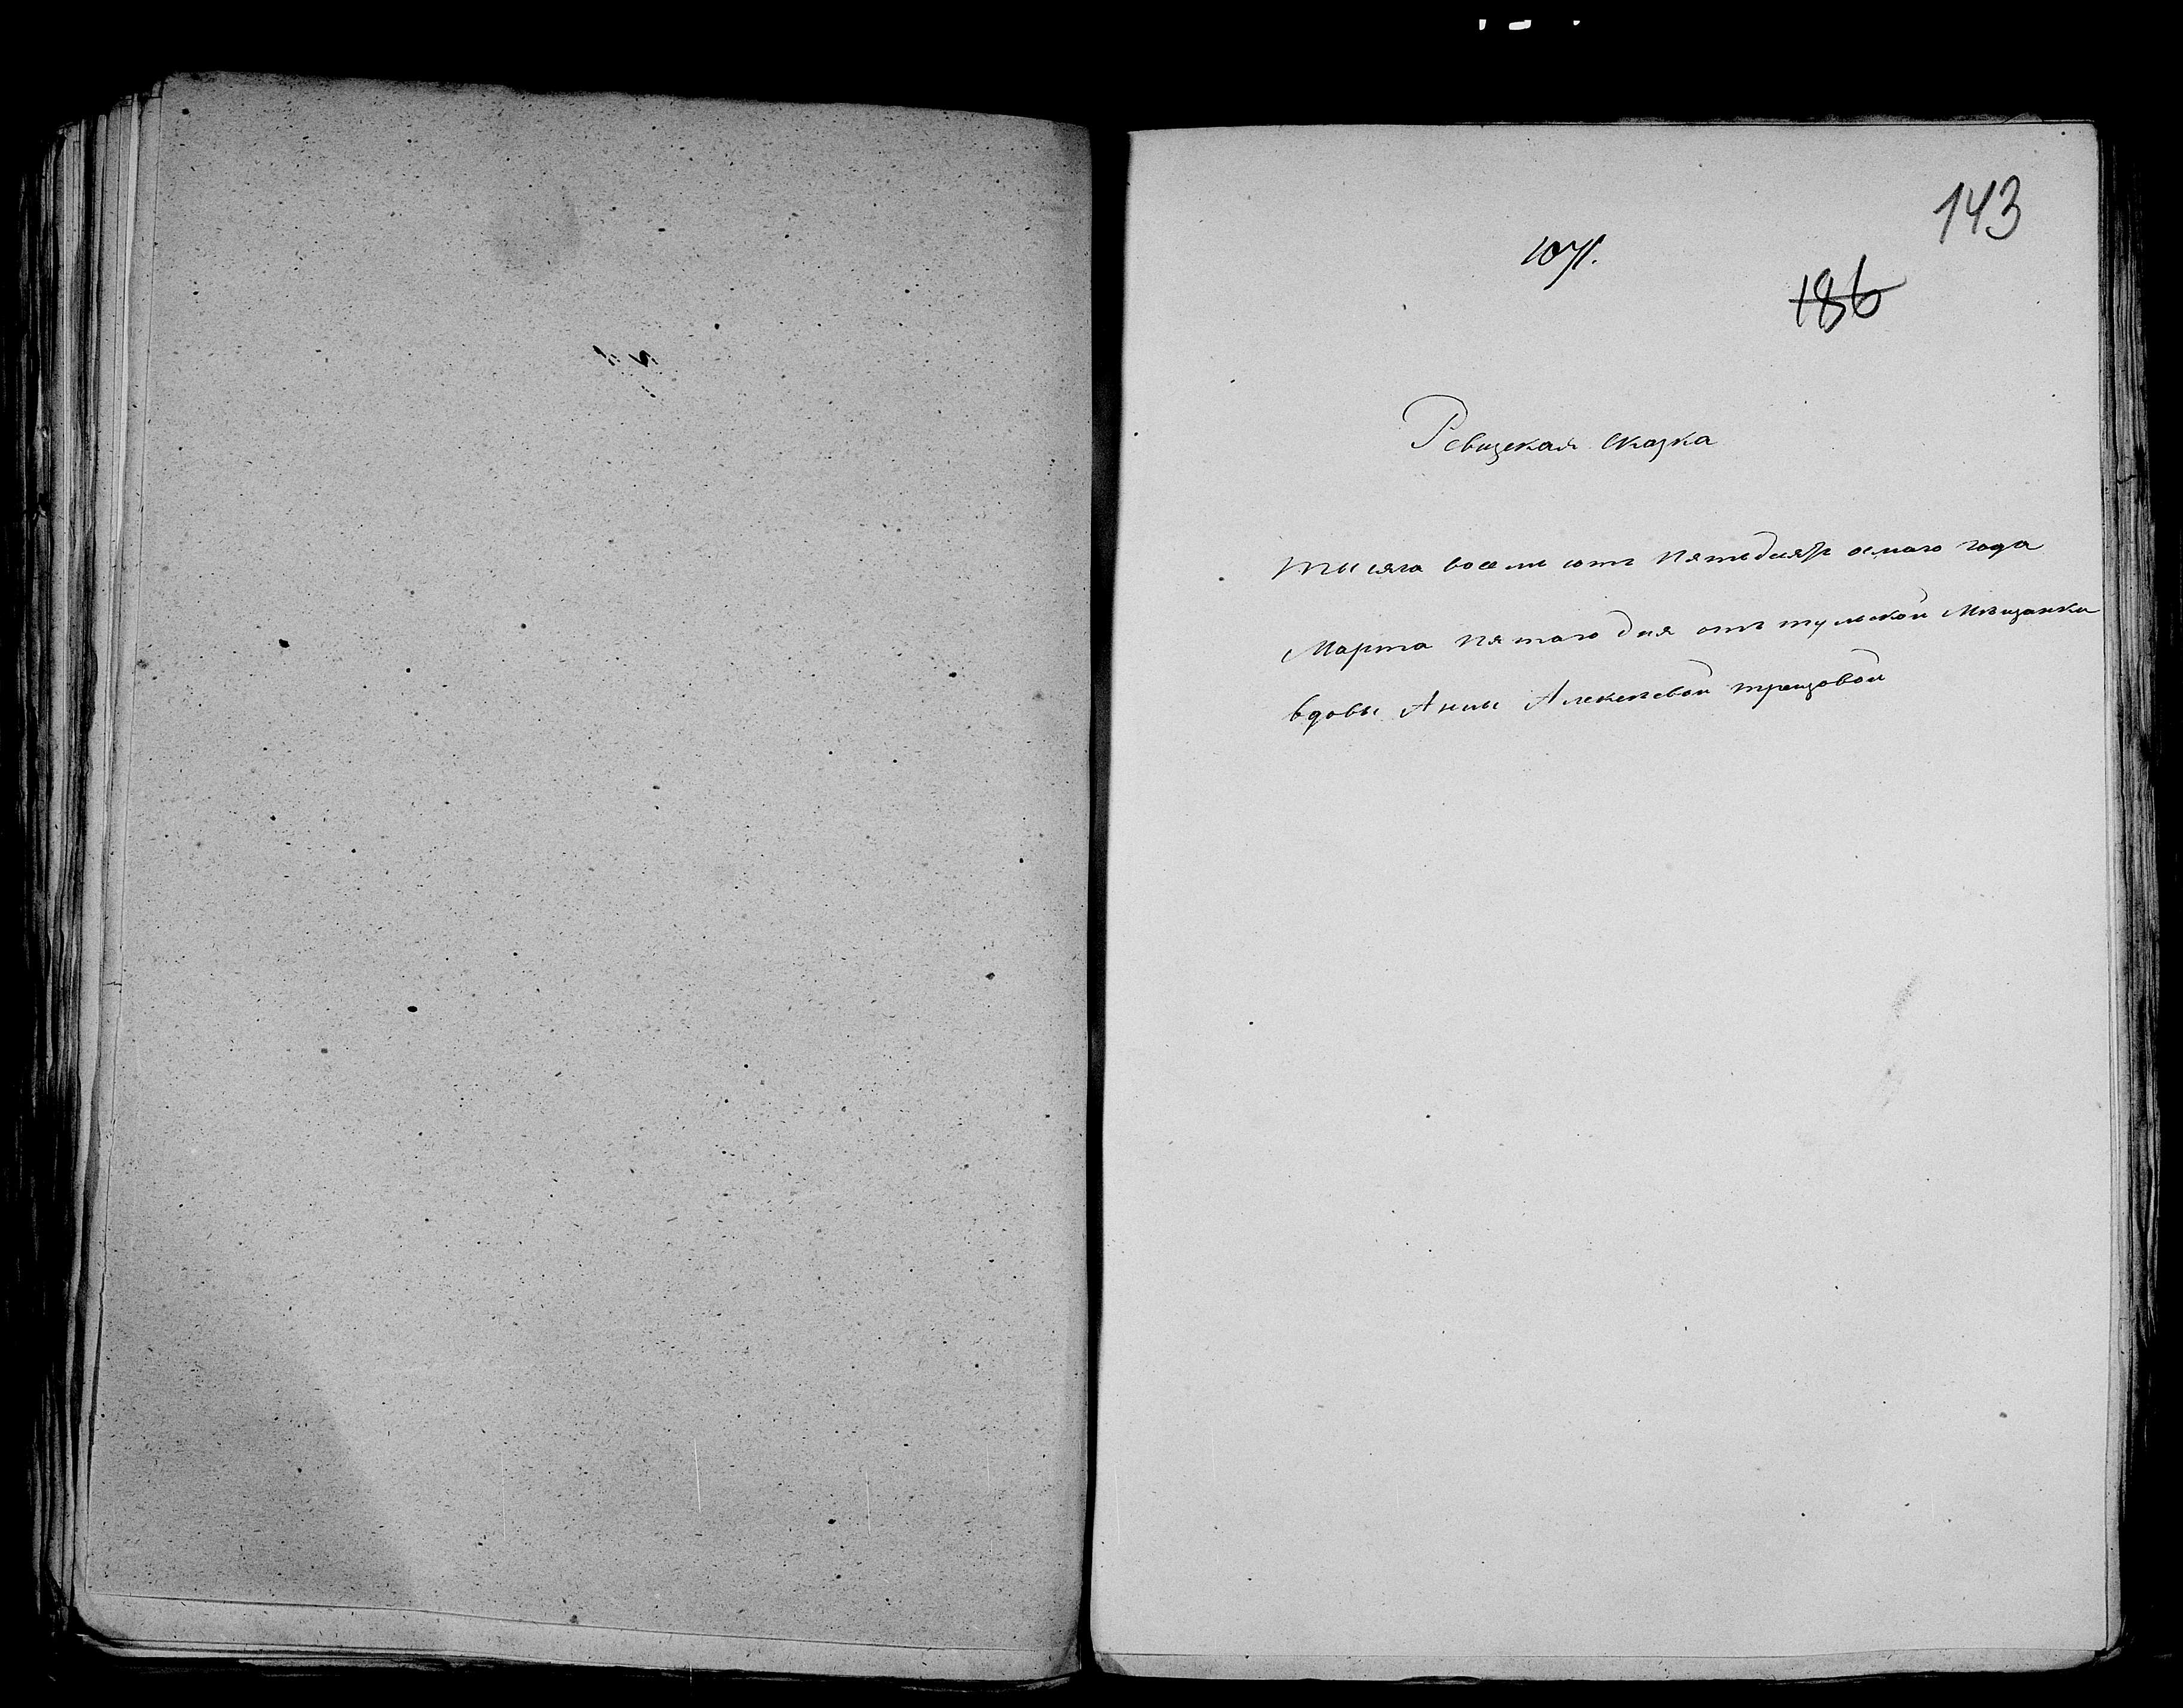 143
1071.
186
Ревизская Сказка
тысяча восемь сотъ пятьдесятъ осмаго года
Марта пятаго дня отъ тульской Мѣщанки
вдовы Анны Алексѣевой